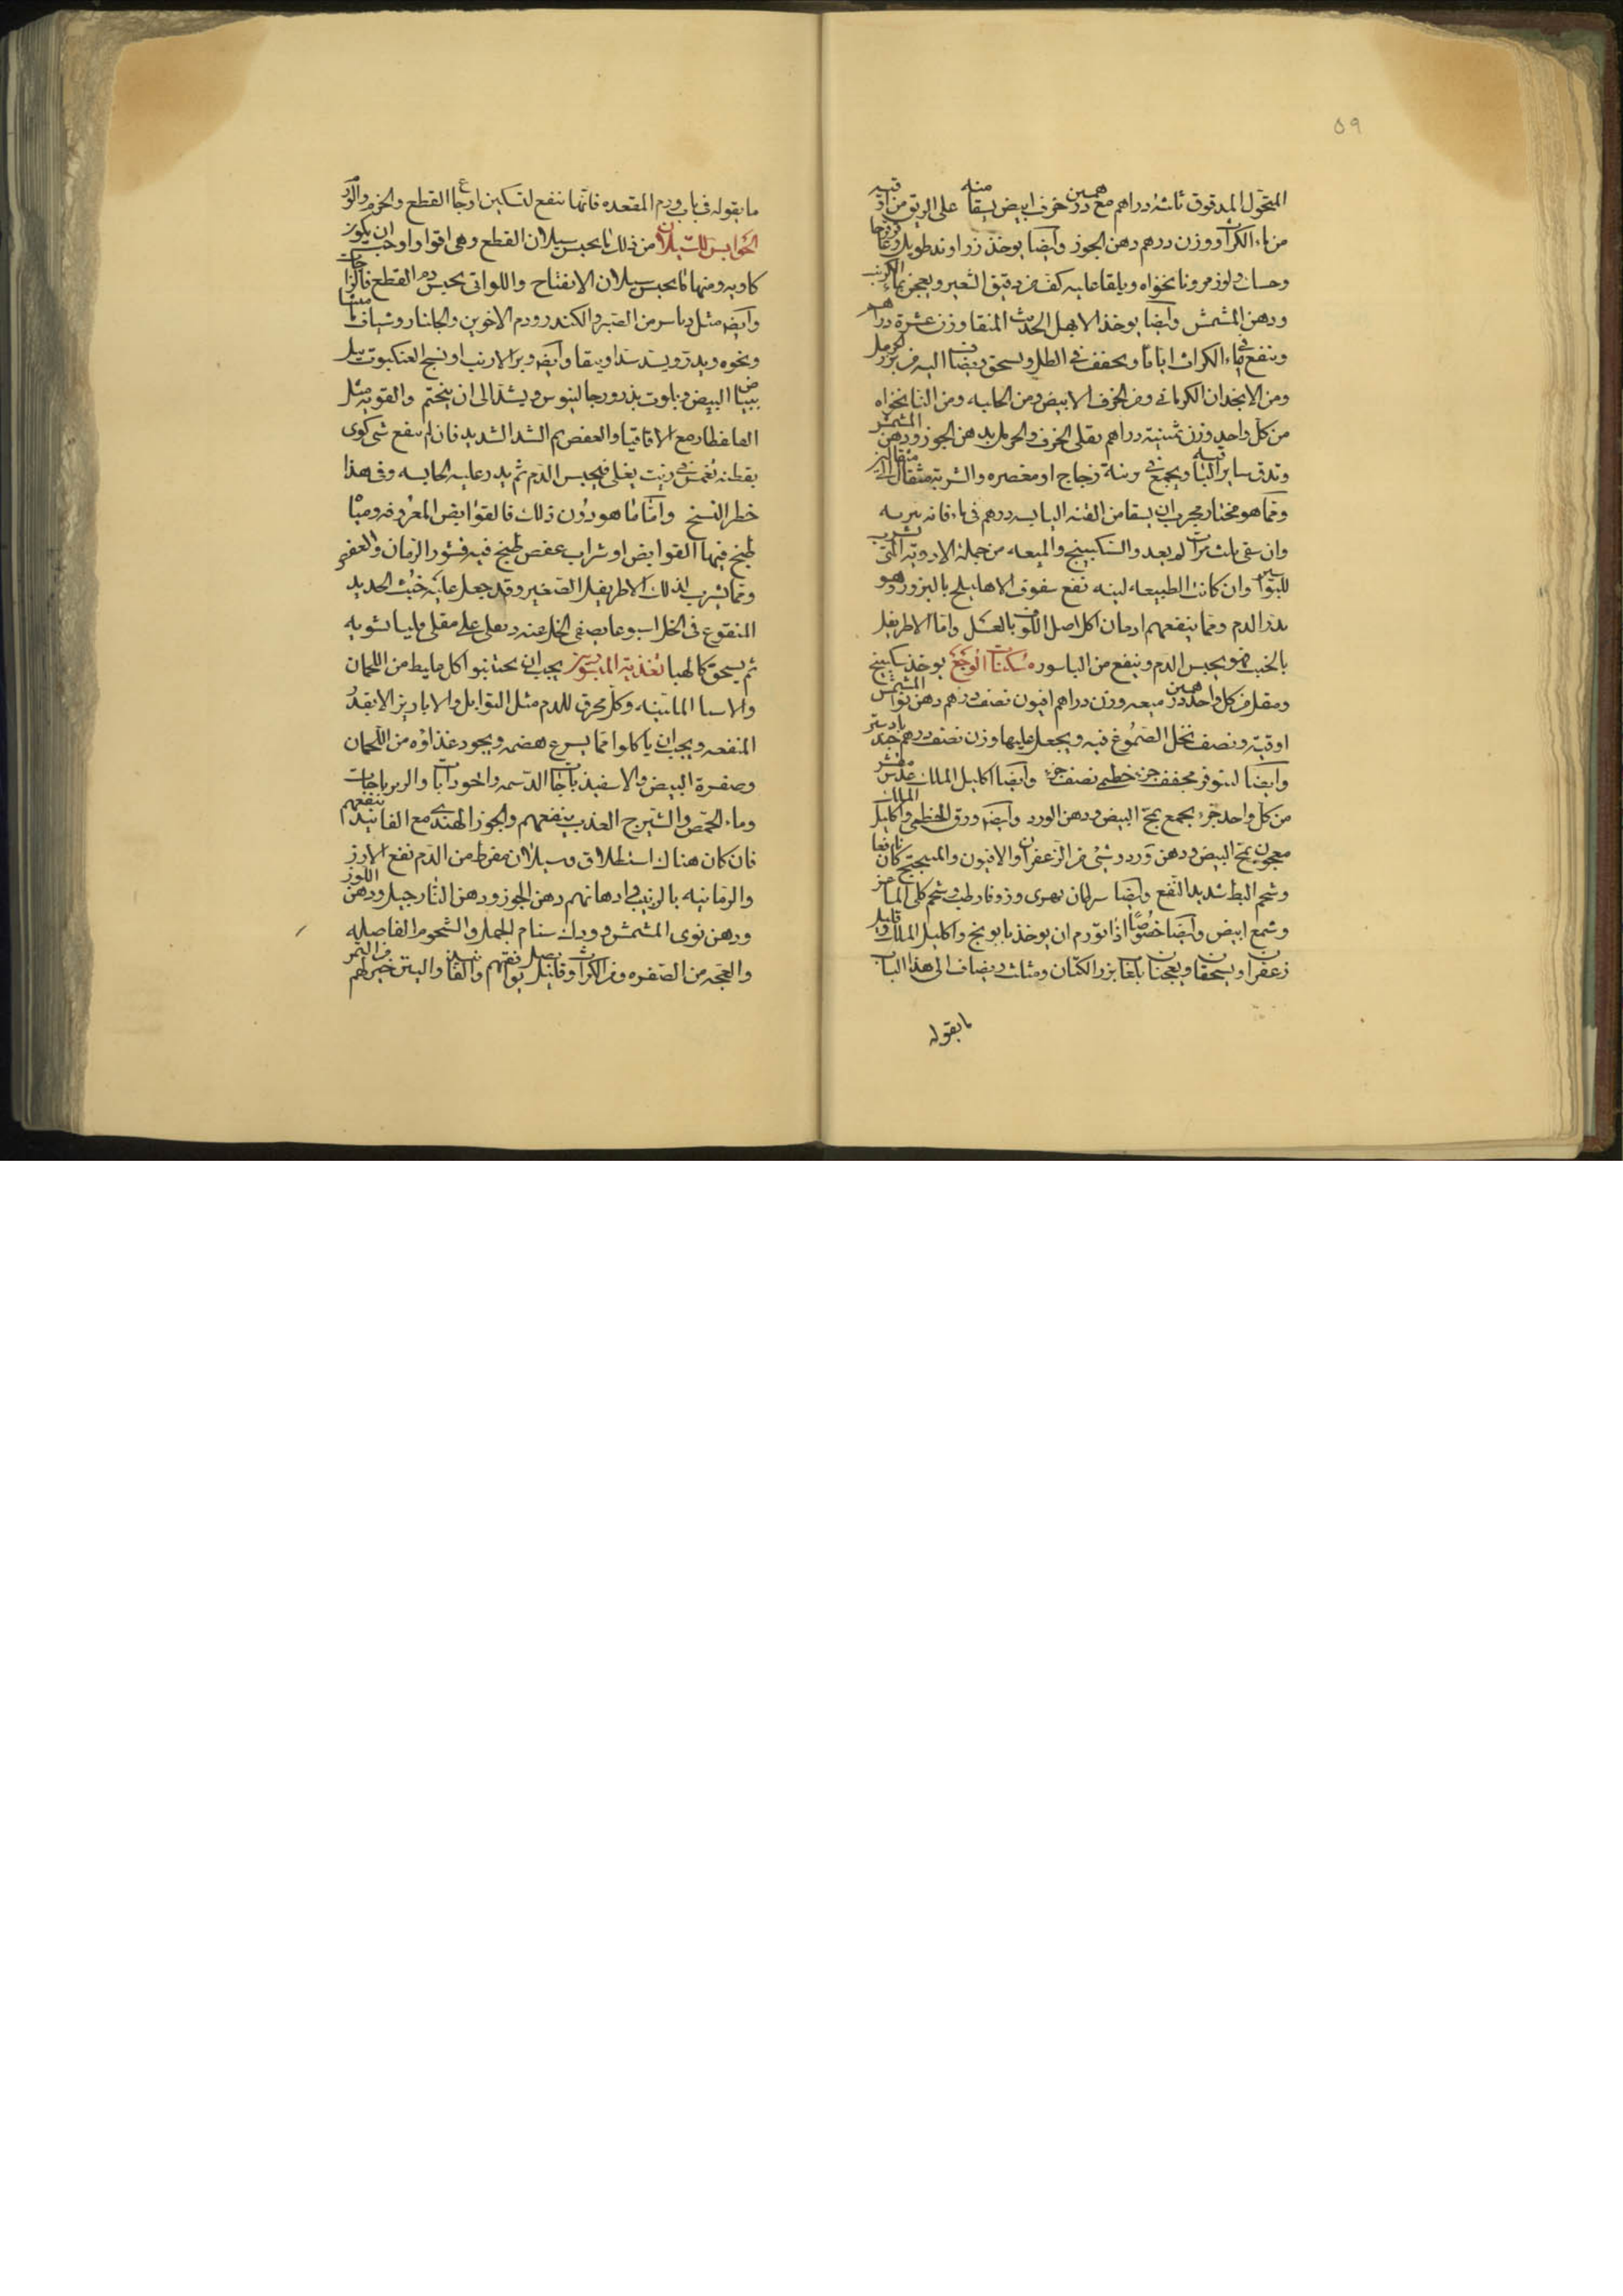 ٥٩
المنخول المدقوق ثلثة دراهم مع درهمين خرف ابيض يسقا منه على الريق من اوقيه
من ماء الكراث ووزن درهم دهن الجوز وايضا يوخذ زراوند طويل وعاقرقرحا
وحسك ولوز مر ونانخواه ويلقا عليه كف من دقيق الشعير ويعجن بماء الكرنب
ودهن المشمش وايضا يوخذ الابهل الحديث المنقا وزن عشرة دراهم
وينقع في ماء الكراث اياما ويجفف في الظل ويسحق ويضاف اليه من بزر الحرمل
ومن الانجدان الكرماني ومن الخرف الابيض ومن الحلبه ومن النانخواه
من كل واحد وزن ثمنية دراهم يقلى الخرف والحرمل بدهن الجوز ودهن المشمش
وتدق ساير الباقيه ويجمع في برنية زجاج او مغصره والشربة مثقال الى مثقالين
ومما هو مختار مجرب ان يسقا من القنه اليابسه درهم في ماء فانه يبريه
وان سقى ثلث مرات لم يعد والسكبينج والميعه من جملة الادوية التي تشرب
للبواسير وان كانت الطبيعه لينه نفع سفوف الاهليلج بالبزور وهو
يدر الدم ومما ينفعهم ادمان اكل اصل الكون بالعسل واما الاطريفل
بالخبث فهو يحبس الدم وينفع من الباسور مسكنات الوجع يوخذ سكبينج
ومقل من كل واحد درهمين ميعه وزن دراهم افيون نصف درهم دهن نوا المشمش
اوقية ونصف تحل الصموغ فيه ويجعل عليها وزن نصف درهم جندبادستر
وايضا لينوفر مجفف جزء خطمى نصف جزء وايضا اكليل الملك عدس مقشر
من كل واحد جزء يجمع بمح البيض ودهن الورد وايضه ورق الخطمى واكليل الملك
معجون بمح البيض ودهن ورد وشئ من الزعفران والافيون والميبختج كان نافعا
وشحم البط شديد النفع وايضا سرطان نهرى وزوفا رطب وشحم كلى الماعز
وشمع ابيض وايضا خصوصا اذا تورم ان يوخذ بابونج واكليل الملك وقليل
زعفران ويسحقان ويعجنان بلعاب بزر الكتان ومثلث ويضاف الى هذا الباب
ما يقوله
ما يقوله في باب ورم المقعده فانها تنفع لتسكين اوجاع القطع والخزم والورم
الحوابس للسيلان من ذلك ما يحبس سيلان القطع وهي اقوا واوجب ان يكون
كاويه ومنها ما يحبس سيلان الانفتاح واللواتى يحبس دم القطع فالزاجات
وايضه مثل من الصبر والكندر ودم الاخوين والجلنار وشياف ماميثا
ونحوه ويذر ويشد شدا ويبقا وايضه وبر الارنب او نسج العنكبوت يبل
ببياض البيض ويلوث بذرور جالينوس ويشد الى ان يختم والقويه مثل
القلقطار مع الاقاقيا والعفص ثم الشد الشديد فان لم ينفع شى كوى
بقطنه تغمس فى زيت يغلى فيحبس الدم ثم يذر عليه الحابسه وفى هذا
خطر التشنج واما ما هو دون ذلك فالقوابض المعروفه ومياه
طبخ فيها القوابض او شراب عفص طبخ فيه قشور الرمان والعفص
ومما يشرب لذلك الاطريفل الصغير وقد جعل عليه خبث الحديد
المنقوع فى الخل اسبوعا يصفى الخل عنه ويقلى على مقلى قليا يشويه
ثم يسحق كالهبا تغذية المبسورين يجب ان يحتنبوا كل غليظ من اللحمان
والاشيا الماتينه وكل محرق للدم مثل التوابل والابازير الا بقدر
المنفعه ويجب ان ياكلوا مما يسرع هضمه ويجود غذاؤه من اللحمان
وصفرة البيض والاسفيذباجات الدسمه والجوذابات والزيرباجات
وماء الحمص والشيرج العذب ينفعهم والجوز الهندى مع الفانيد ينفعهم
فان كان هناك استطلاق وسيلان مفرط من الدم نفع الارز
والرمانيه بالزبيب وادهانهم دهن الجوز ودهن النارجيل ودهن اللوز
ودهن نوى المشمش وودك سنام الجمل والشحوم الفاضله
والعجه من الصفره ومن الكراث وقليل بصل يوافقهم والفانيد والتين خير لهم من التمر